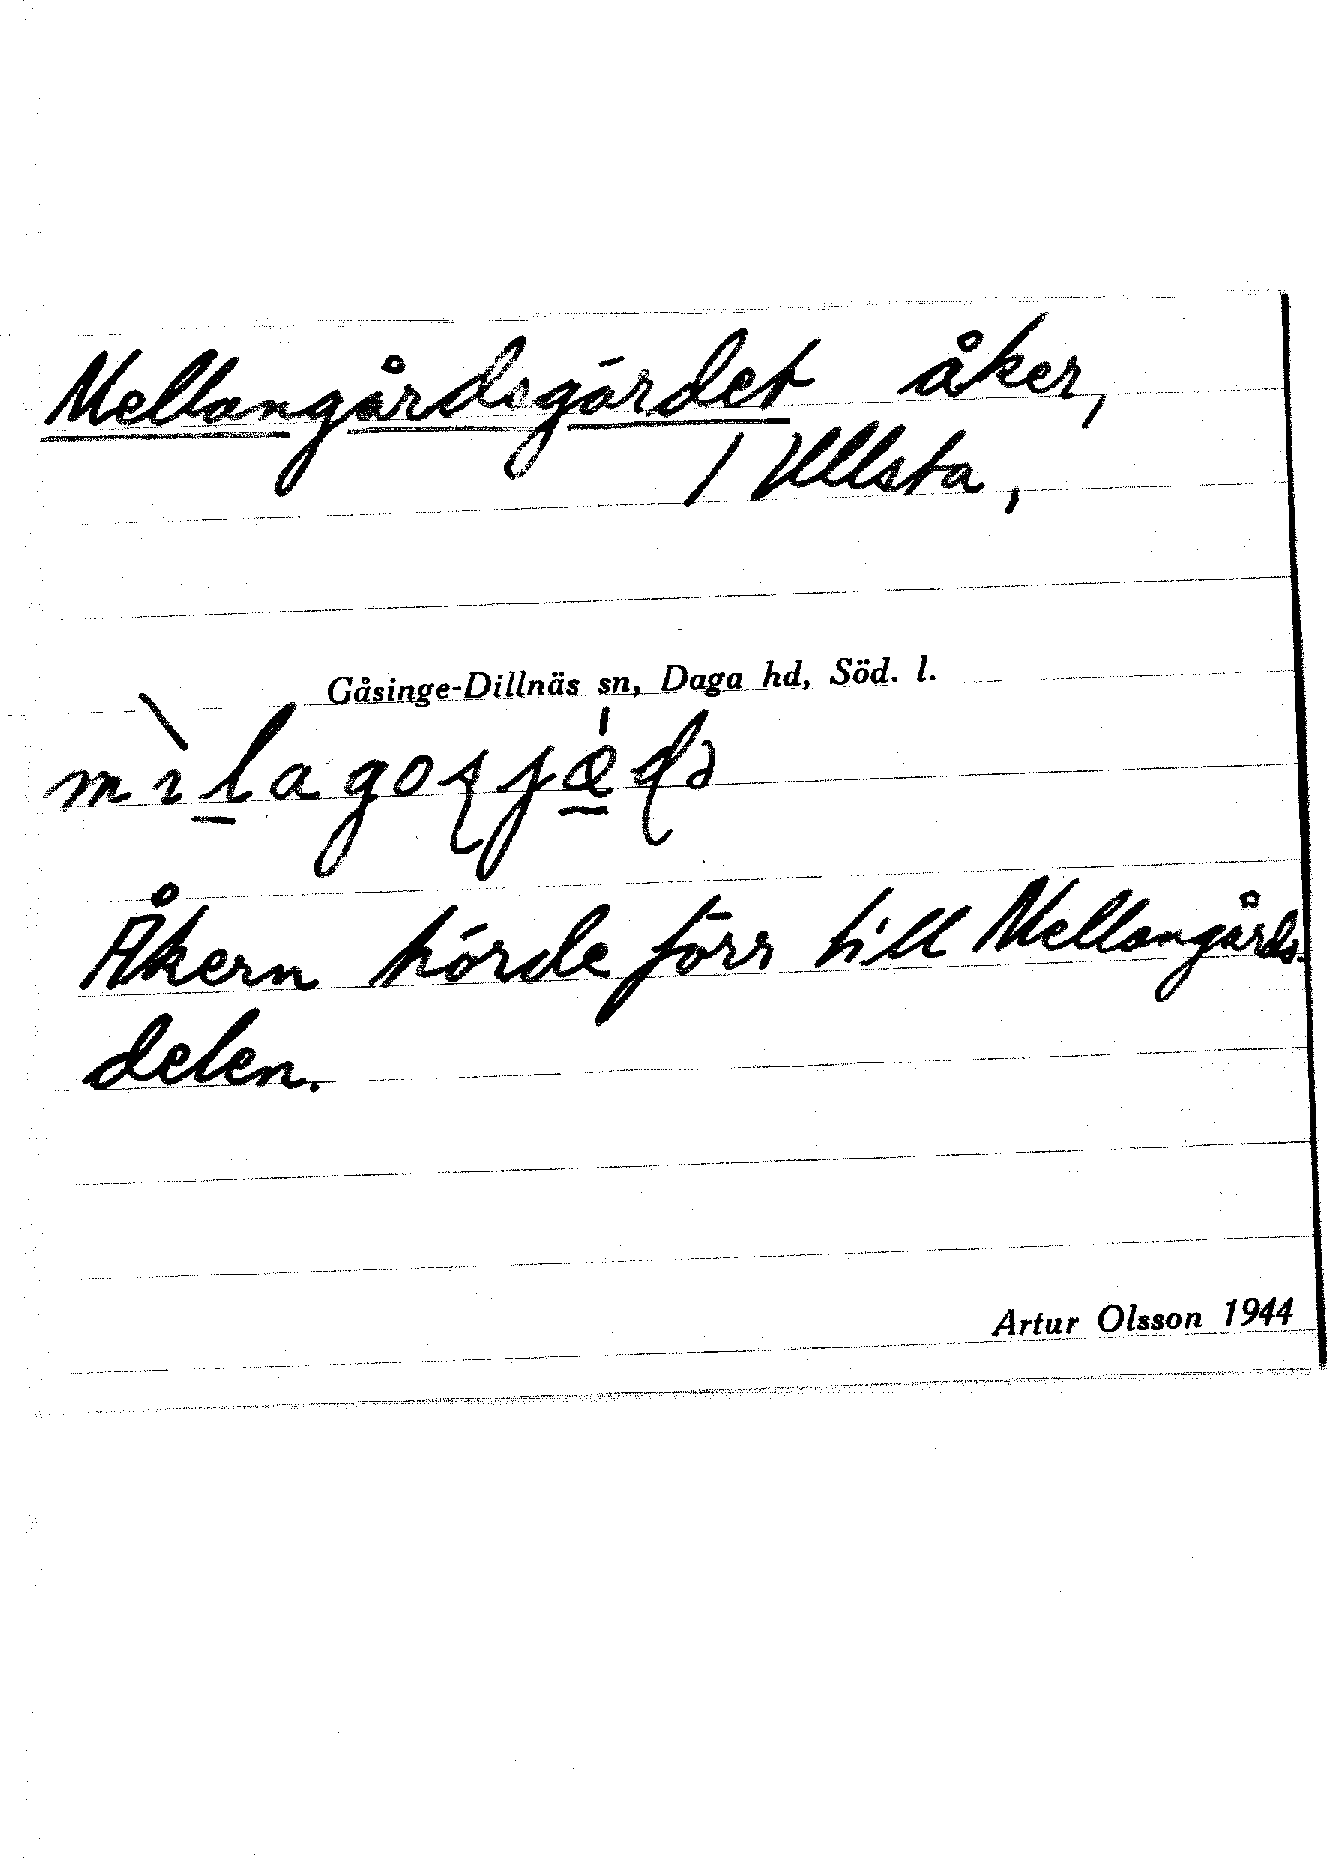 Mellangårdsgärdet åker,
/ Ullsta,
Gåsinge-Dillnäs sn, Daga hd, Söd. l.
Åkern hörde förr till Mellangårds-
delen.
Artur Olsson 1944